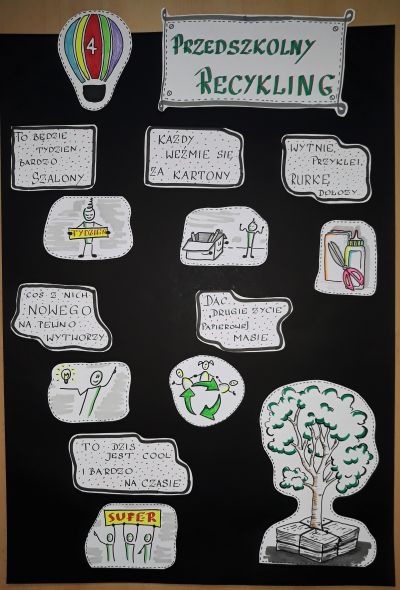 4
PRZEDSZKOLNY
RECYKLING
TO BĘDZIE
TYDZIEŃ
BARDZO
SZALONY
KAŻDY
WEŹMIE SIĘ
ZA KARTONY
WYTNIE,
PRZYKLEI,
RURKĘ
DOŁOŻY
TYDZIEŃ
COŚ Z NICH
NOWEGO
NA PEWNO
WYTWORZY
DAĆ
„DRUGIE ŻYCIE"
PAPIEROWEJ
MASIE.
TO DZIŚ
JEST COOL
I BARDZO
NA CZASIE
SUPER